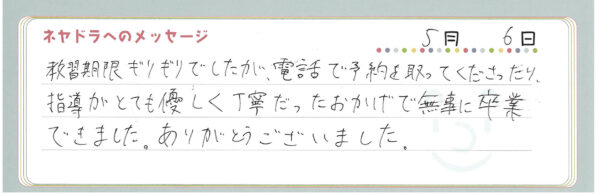 ネヤドラへのメッセージ
5月 6日
教習期限ギリギリでしたが、電話で予約を取ってくださったり、
指導がとても優しく丁寧だったおかげで無事に卒業
できました。ありがとうございました。